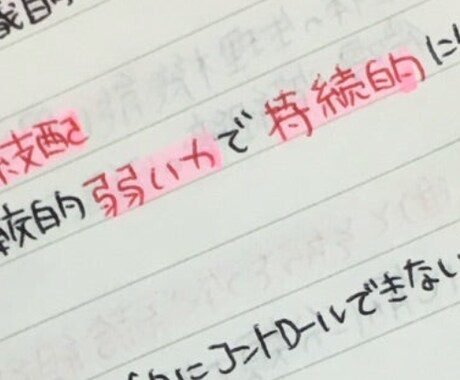 支配
較的弱い力で持続的に
的にコントロールできない